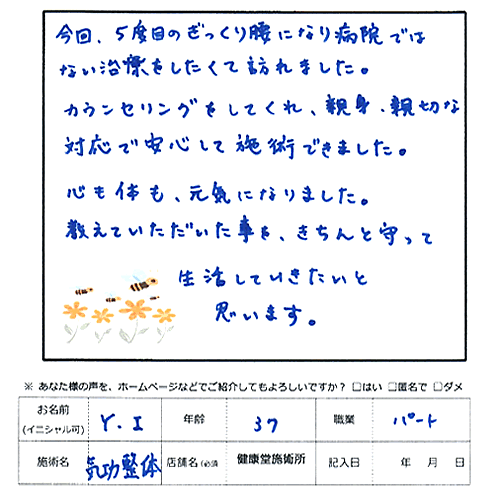 今回、5度目のぎっくり腰になり病院では
ない治療をしたくて訪れました。
カウンセリングをしてくれ、親身、親切な
対応で安心して施術できました。
心も体も、元気になりました。
教えていただいた事を、きちんと守って
生活していきたいと
思います。
※ あなた様の声を、ホームページなどでご紹介してもよろしいですか？ □はい □匿名で □ダメ
お名前 (イニシャル可) Y.I 年齢 37 職業 パート
施術名 気功整体 店舗名（必須 健康堂施術所 記入日 年 月 日